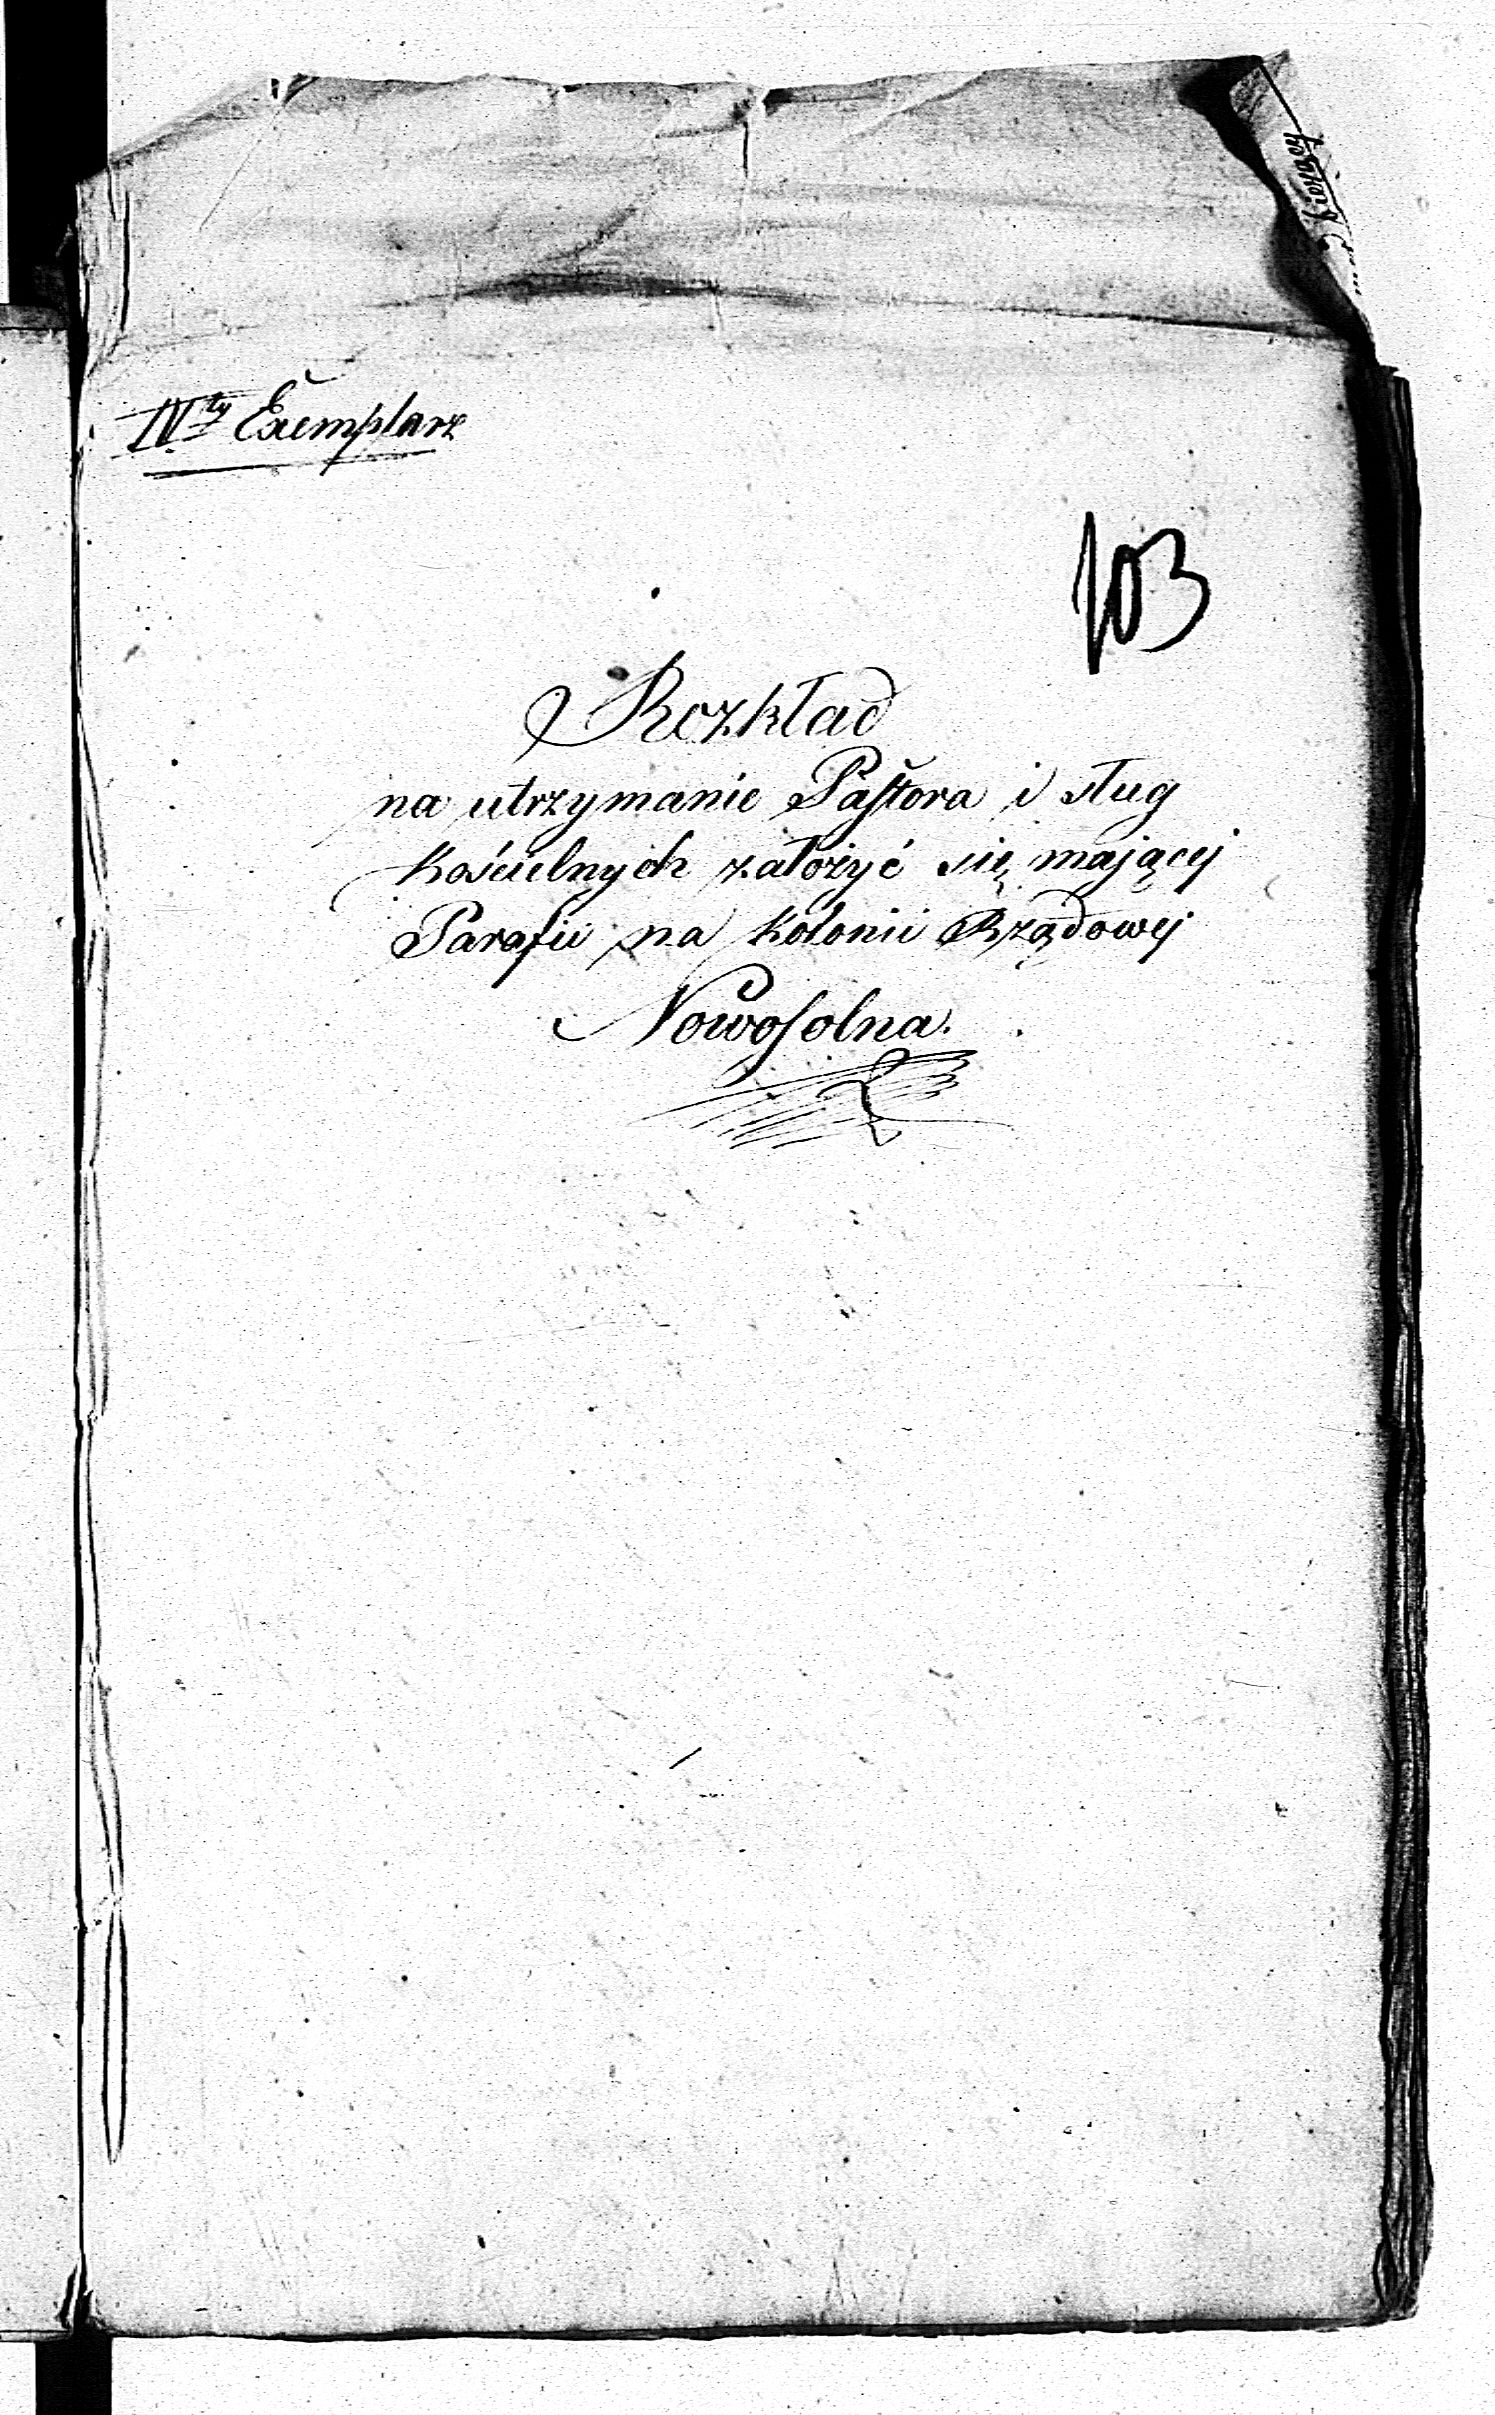 IVty Exemplarz
103
Rozkład
na utrzymanie Pastora i sług
Kościelnych założyć się mającej
Parafii na Kolonii Rządowej
Nowosolna.